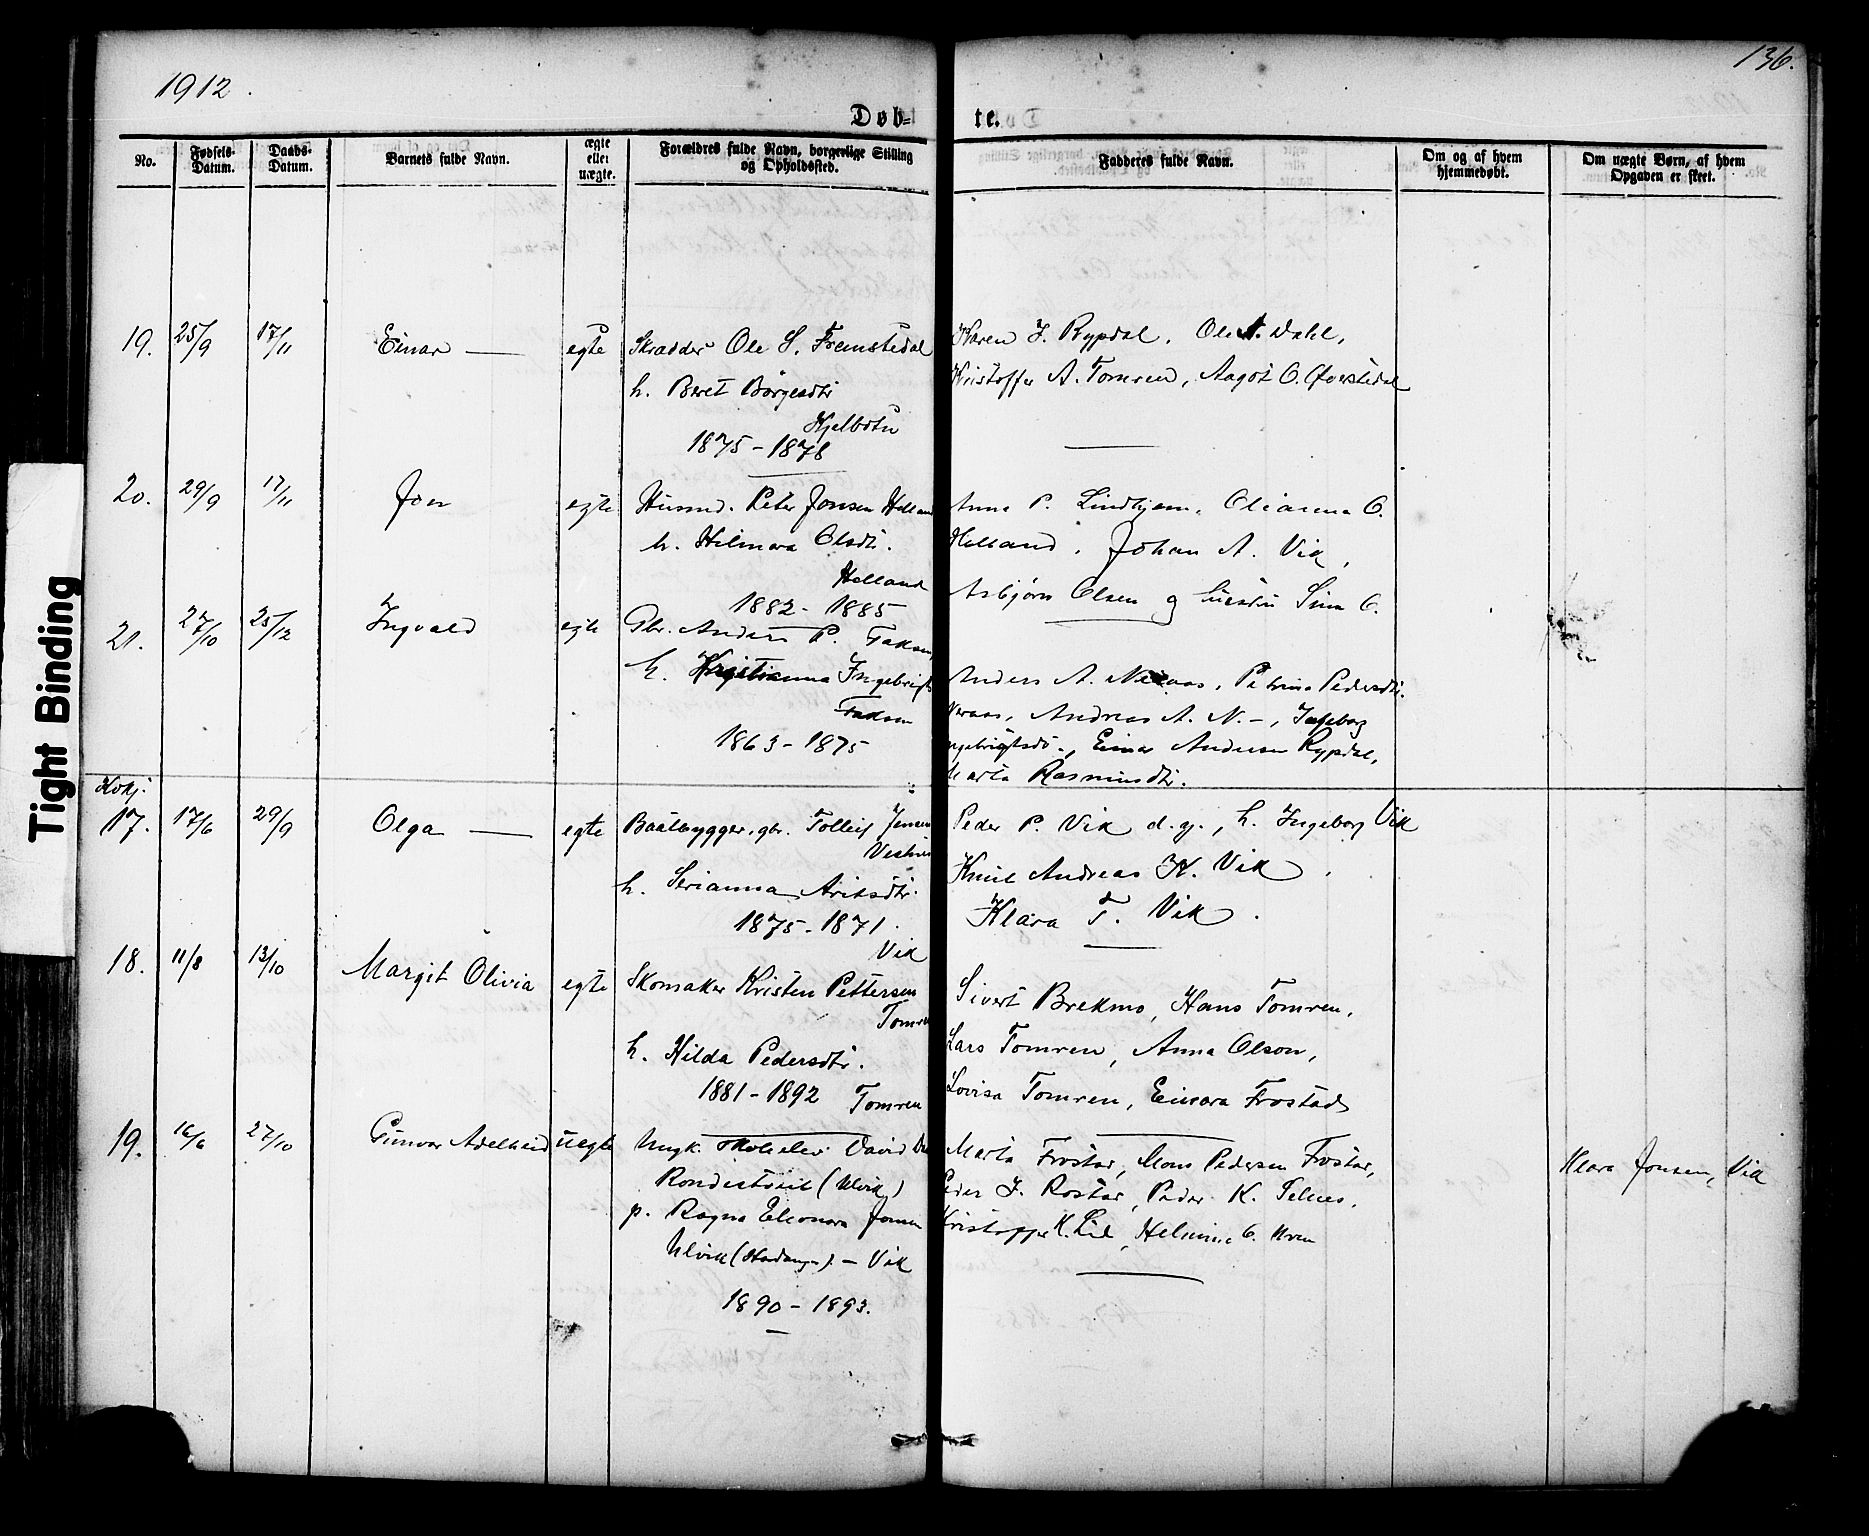 1912.
136.
Døb=
te.
No.
Fødsels-
Datum.
Daabs-
Datum.
Barnets fulde Navn.
ægte
eller
uægte.
Forældres fulde Navn, borgerlige Stilling
og Opholdssted.
Fadderes fulde Navn.
Om og af hvem
hjemmedøbt.
Om uægte Børn, af hvem
Opgaven er skeet.
19. 25/9 17/11 Einar egte Skrædder Ole S. Fremstedal
h. Beret Börgesdtr
Kjelbotn
1875 - 1878
Karen J. Rypdal, Ole A. Dahl,
Kristoffer A. Tomren, Aagot O. Øverstedal
20. 29/9 17/11 Jon egte Husmd. Peter Jonsen Helland
h. Hilmara Olsdtr.
Helland
1882 - 1885
Anna P. Lindhjem, Olianna O.
Helland, Johan A. Vik,
Asbjørn Olsen og Sina O.
21. 27/10 25/12 Ingvald egte Gbr. Anders P. Faksen
h. Kristianna Ingebrigts
1863 - 1875
Anders A. Neraas, Petrina Pedersdtr.
Neraas, Andreas A. N. -, Ingeborg
Ingebrigtsd., Einar Andersen Rypdal,
Marta Rasmusdtr.
17. 17/6 29/9 Olga egte Baatbygger, gbr. Tolleif Jensen
h. Serianna
1875 - 1871
Vik
Peder P. Vik d. y., h. Ingeborg Vik
Knut Andreas K. Vik
Klara T. Vik.
18. 11/8 13/10 Margit Olivia egte Skomaker Kristen Pettersen
Tomren
h. Hilda Pedersdtr.
1881 - 1892 Tomren
Sivert Brekmo, Hans Tomren,
Lars Tomren, Anna Olson,
Lovisa Tomren, Einara Frostad
19. 16/6 27/10 Gunvor Adelheid uegte Ungk. David
(Ulvik)
p. Ragna Eleonora Jonsen
Ulvik (Hardanger) - Vik
1890 - 1893.
Marta Frostad, Mons Pedersen Frostad,
Peder J. Rostad, Peder K. Selnes,
Kristoffer K. Lid, Helmine O.
Klara Jonsen, Vik
Tight Binding